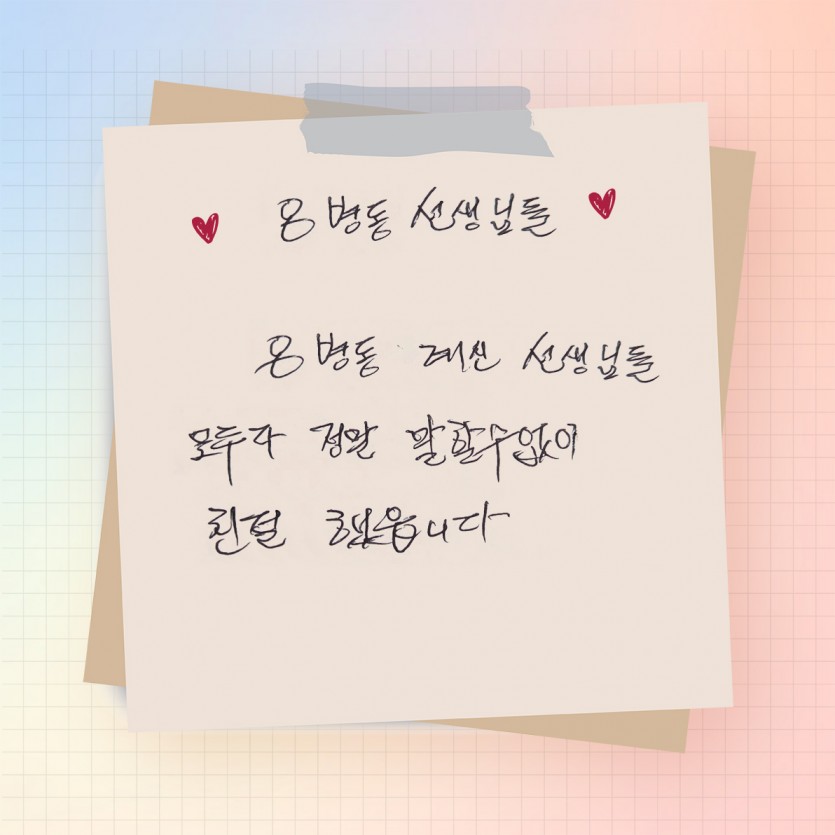 온 병동 선생님들
온 병동 계신 선생님들
모두가 정말 말할수없이
친절 했읍니다